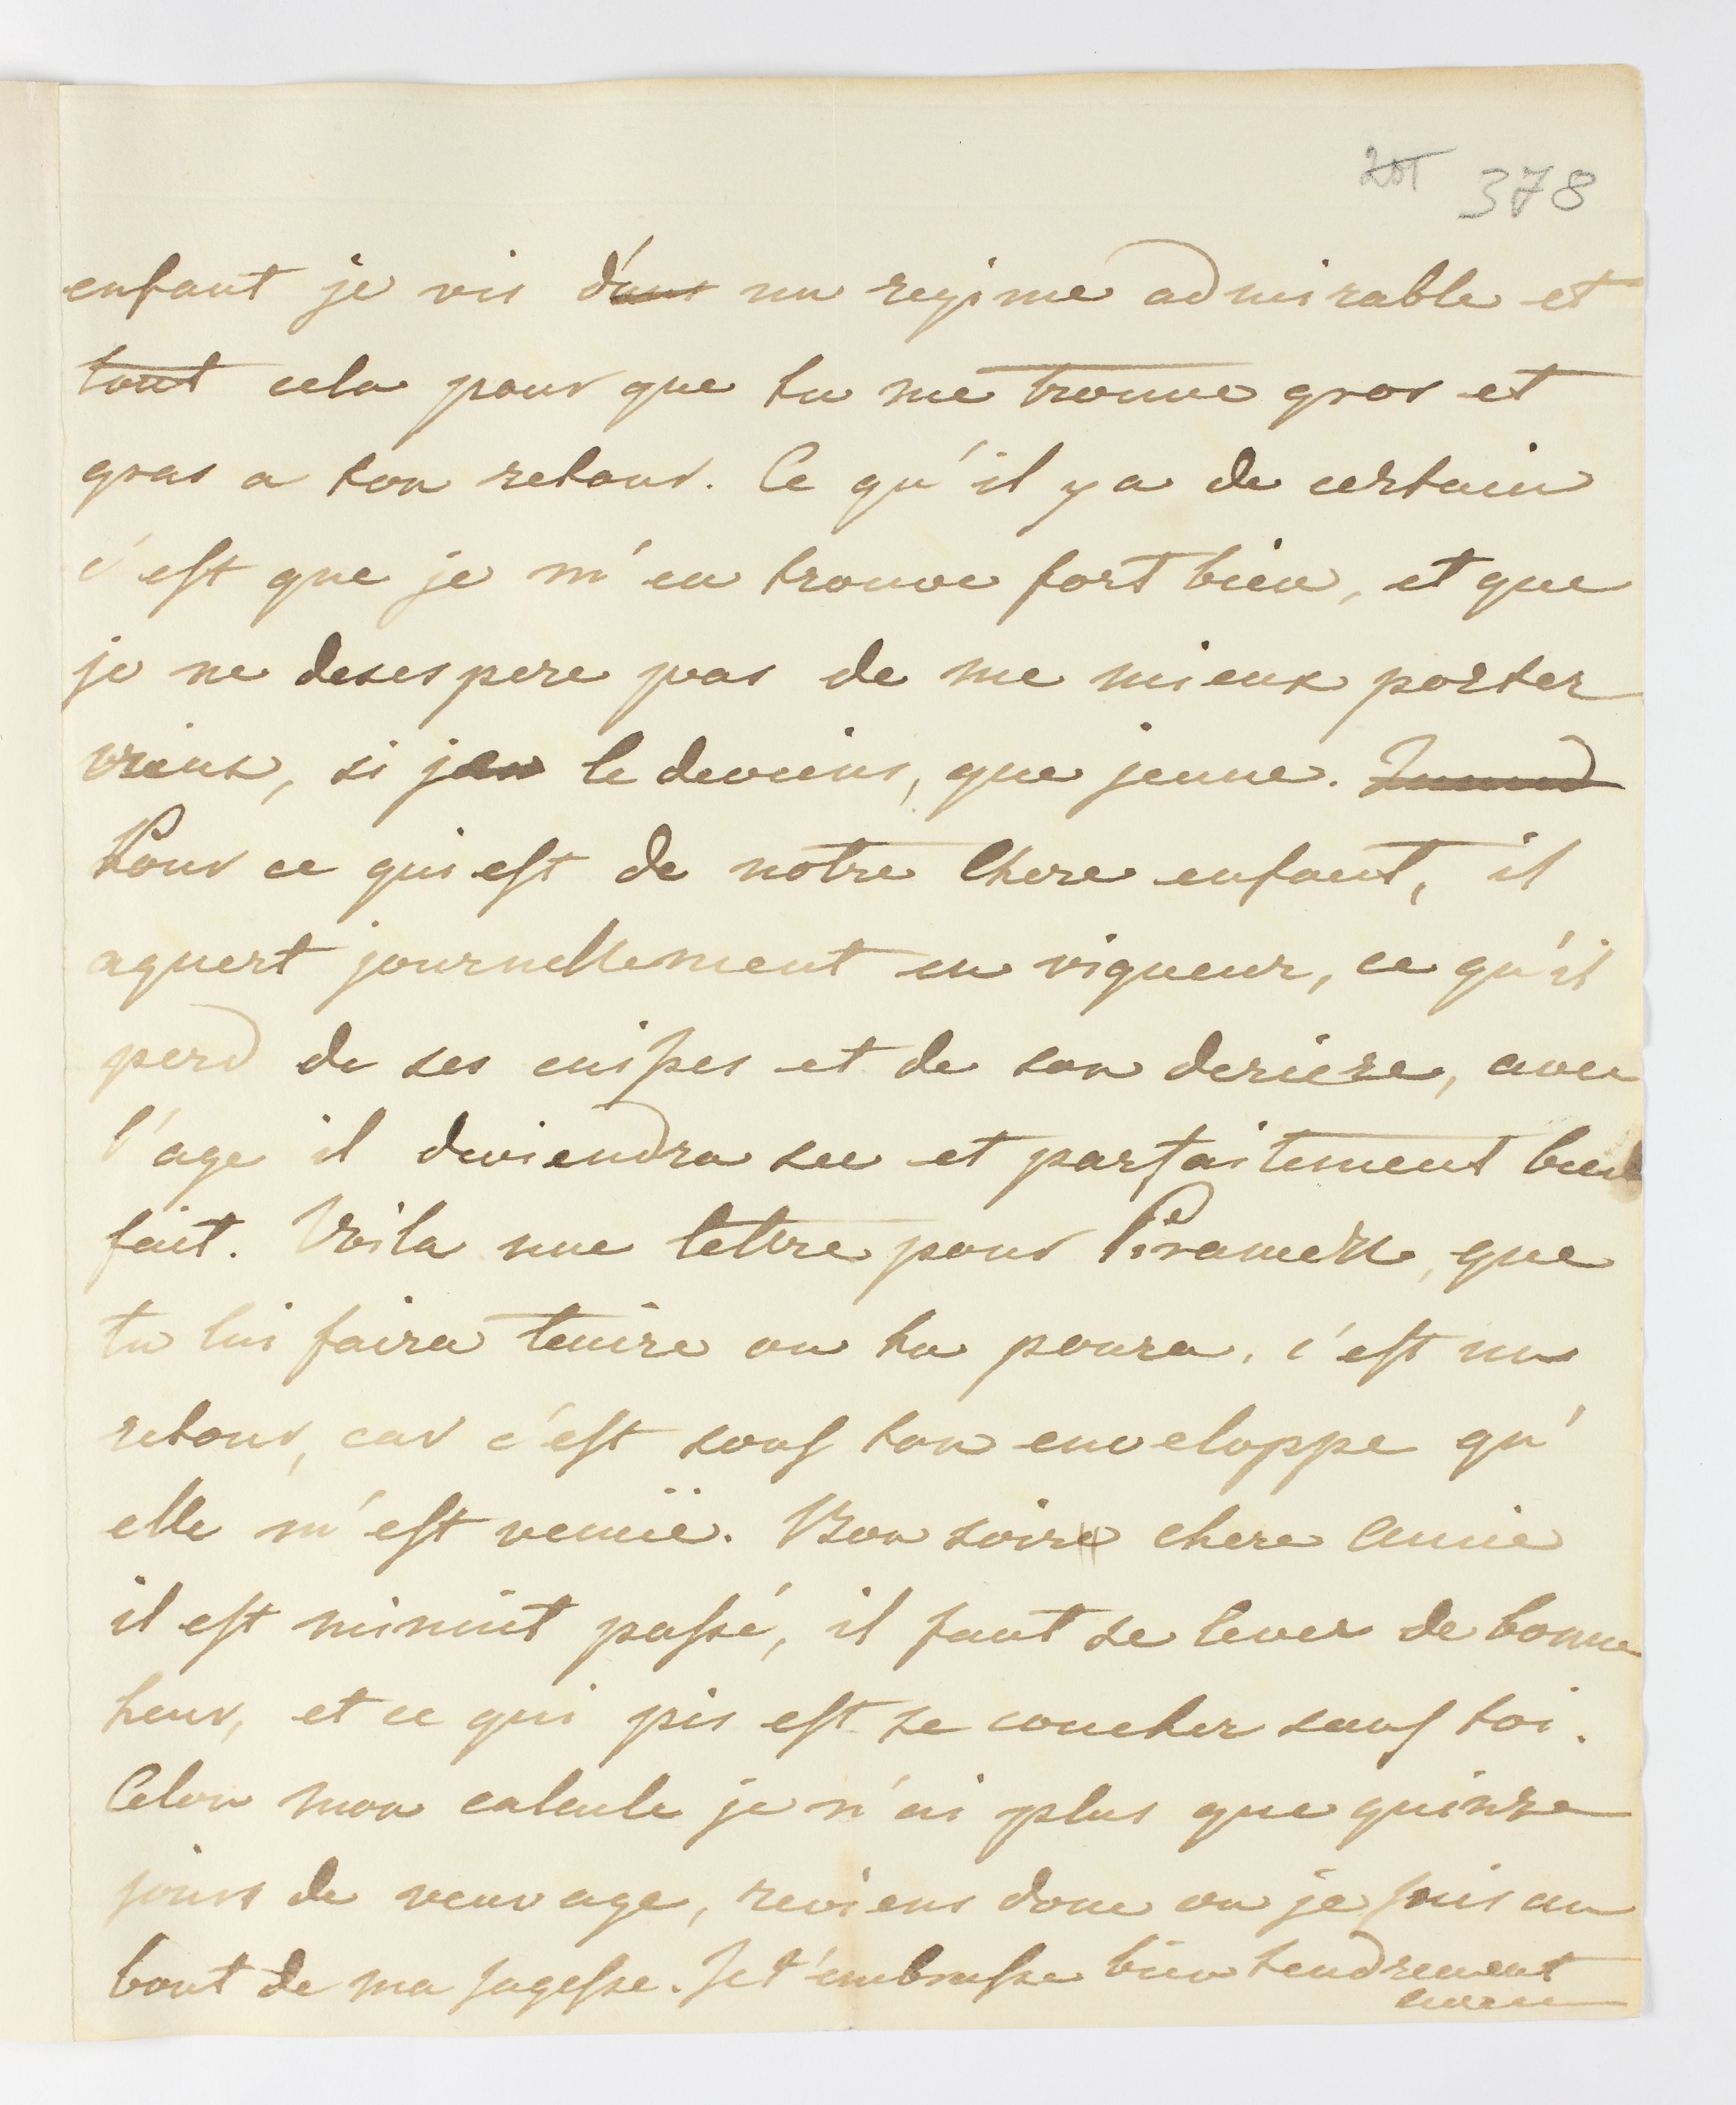 378
enfant je vis d'une un regime admirable et
tout cela pour que tu me trouve gros et
gras a ton retour. Ce qu'il y a de certain
c'est que je m'en trouve fort bien, et que
je ne desespere pas de me mieux porter
vieux, si je le deviens, que jeune.
Pour ce qui est de notre chere enfant, il
aquert journellement en vigueur, ce qu'il
perd de ses cuisses et de son deriere, avec
l'age il deviendra sec et parfaitement bien
fait. Voila une lettre pour Piramell, que
tu lui faira tenire ou tu poura, c'est un
retour, car c'est sous ton enveloppe qu'
elle m'est venuë. Bon soire chere Amie
il est minuit passé, il faut se lever de bonne
heur, et ce qui pis est se coucher sans toi.
Celon mon calcule je n'ai plus que quinze
jours de veuvage, reviens donc ou je suis au
bout de ma sagesse. Je t'embrasse bien tendrement